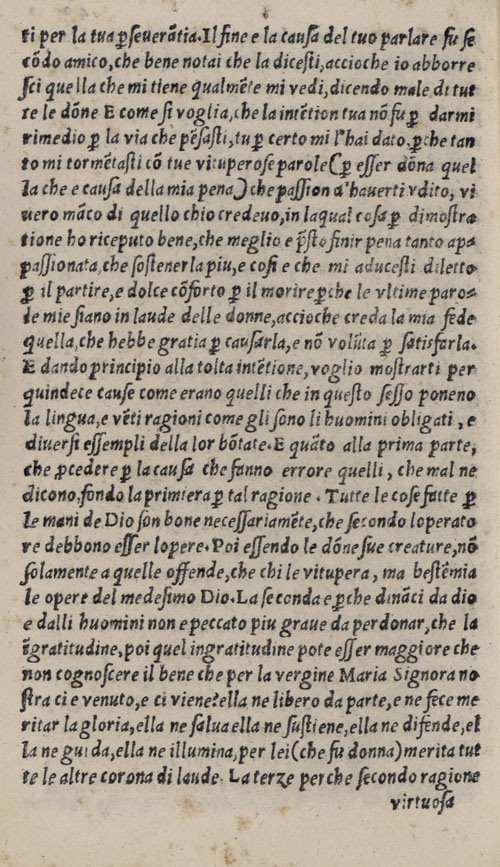 ti per la tua ꝑseuerãtia. Il fine e la causa del tuo parlare fu se
cõdo amico, che bene notai che la dicesti, accioche io abborre
sci quella che mi tiene qualmẽte mi vedi, dicendo male di tut
te le dõne E come si voglia, che la intẽtion tua nõ fu ꝑ darmi
rimedio ꝑ la via che pẽsasti, tu ꝑ certo mi l'hai dato, ꝑche tan
to mi tormẽtasti cõ tue vituperose parole (ꝑ esser dõna quel
la che e causa della mia pena) che passion d'hauerti vdito, vi
uero mãco di quello chio credeuo, in laqual cosa ꝑ dimostra
tione ho riceputo bene, che meglio e p̃sto finir pena tanto ap⸗
passionata, che sostenerla piu, e cosi e che mi aducesti diletto
ꝑ il partire, e dolce cõforto ꝑ il morire ꝑche le vltime paro⸗
le mie siano in laude delle donne, accioche creda la mia fede
quella, che hebbe gratia ꝑ causarla, e nõ volũta ꝑ satisfarla.
E dando principio alla tolta intẽtione, voglio mostrarti per
quindece cause come erano quelli che in questo sesso poneno
la lingua, e vẽti ragioni come gli sono li huomini obligati, e
diuersi essempli della lor bõtate. E quãto alla prima parte,
che ꝓcedere ꝑ la causa che fanno errore quelli, che mal ne
dicono, fondo la primiera ꝑ tal ragione. Tutte le cose fatte ꝑ
le mani de Dio son bone necessariamẽte, che secondo loperato
re debbono esser lopere. Poi essendo le dõne sue creature, nõ
solamente a quelle offende, che chi le vitupera, ma bestẽmia
le opere del medesimo Dio. La seconda e ꝑche dinãci da dio
e dalli huomini non e peccato piu graue da perdonar, che la
ĩgratitudine, poi quel ingratitudine pote esser maggiore che
non cognoscere il bene che per la vergine Maria Signora no
stra ci e venuto, e ci viene? ella ne libero da parte, e ne fece me
ritar la gloria, ella ne salua ella ne sustiene, ella ne difende, el
la ne guida, ella ne illumina, per lei (che fu donna) merita tut
te le altre corona di laude. La terze perche secondo ragione
virtuosa